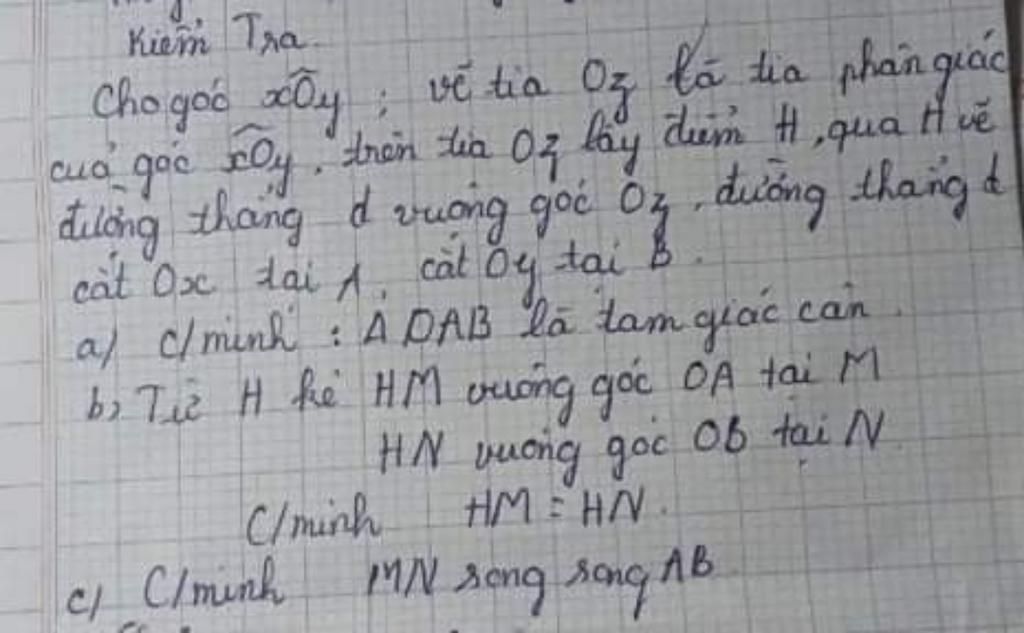 Kiểm Tra
Cho góc xOy ; vẽ tia Oz là tia phân giác
của góc xOy. trên tia Oz lấy điểm H, qua H vẽ
đường thẳng d vuông góc Oz, đường thẳng d
cắt Ox tại A, cắt Oy tại B.
a) C/minh : Δ OAB là tam giác cân.
b) Từ H kẻ HM vuông góc OA tại M
HN vuông góc OB tại N
C/minh HM = HN.
c) C/minh MN song song AB